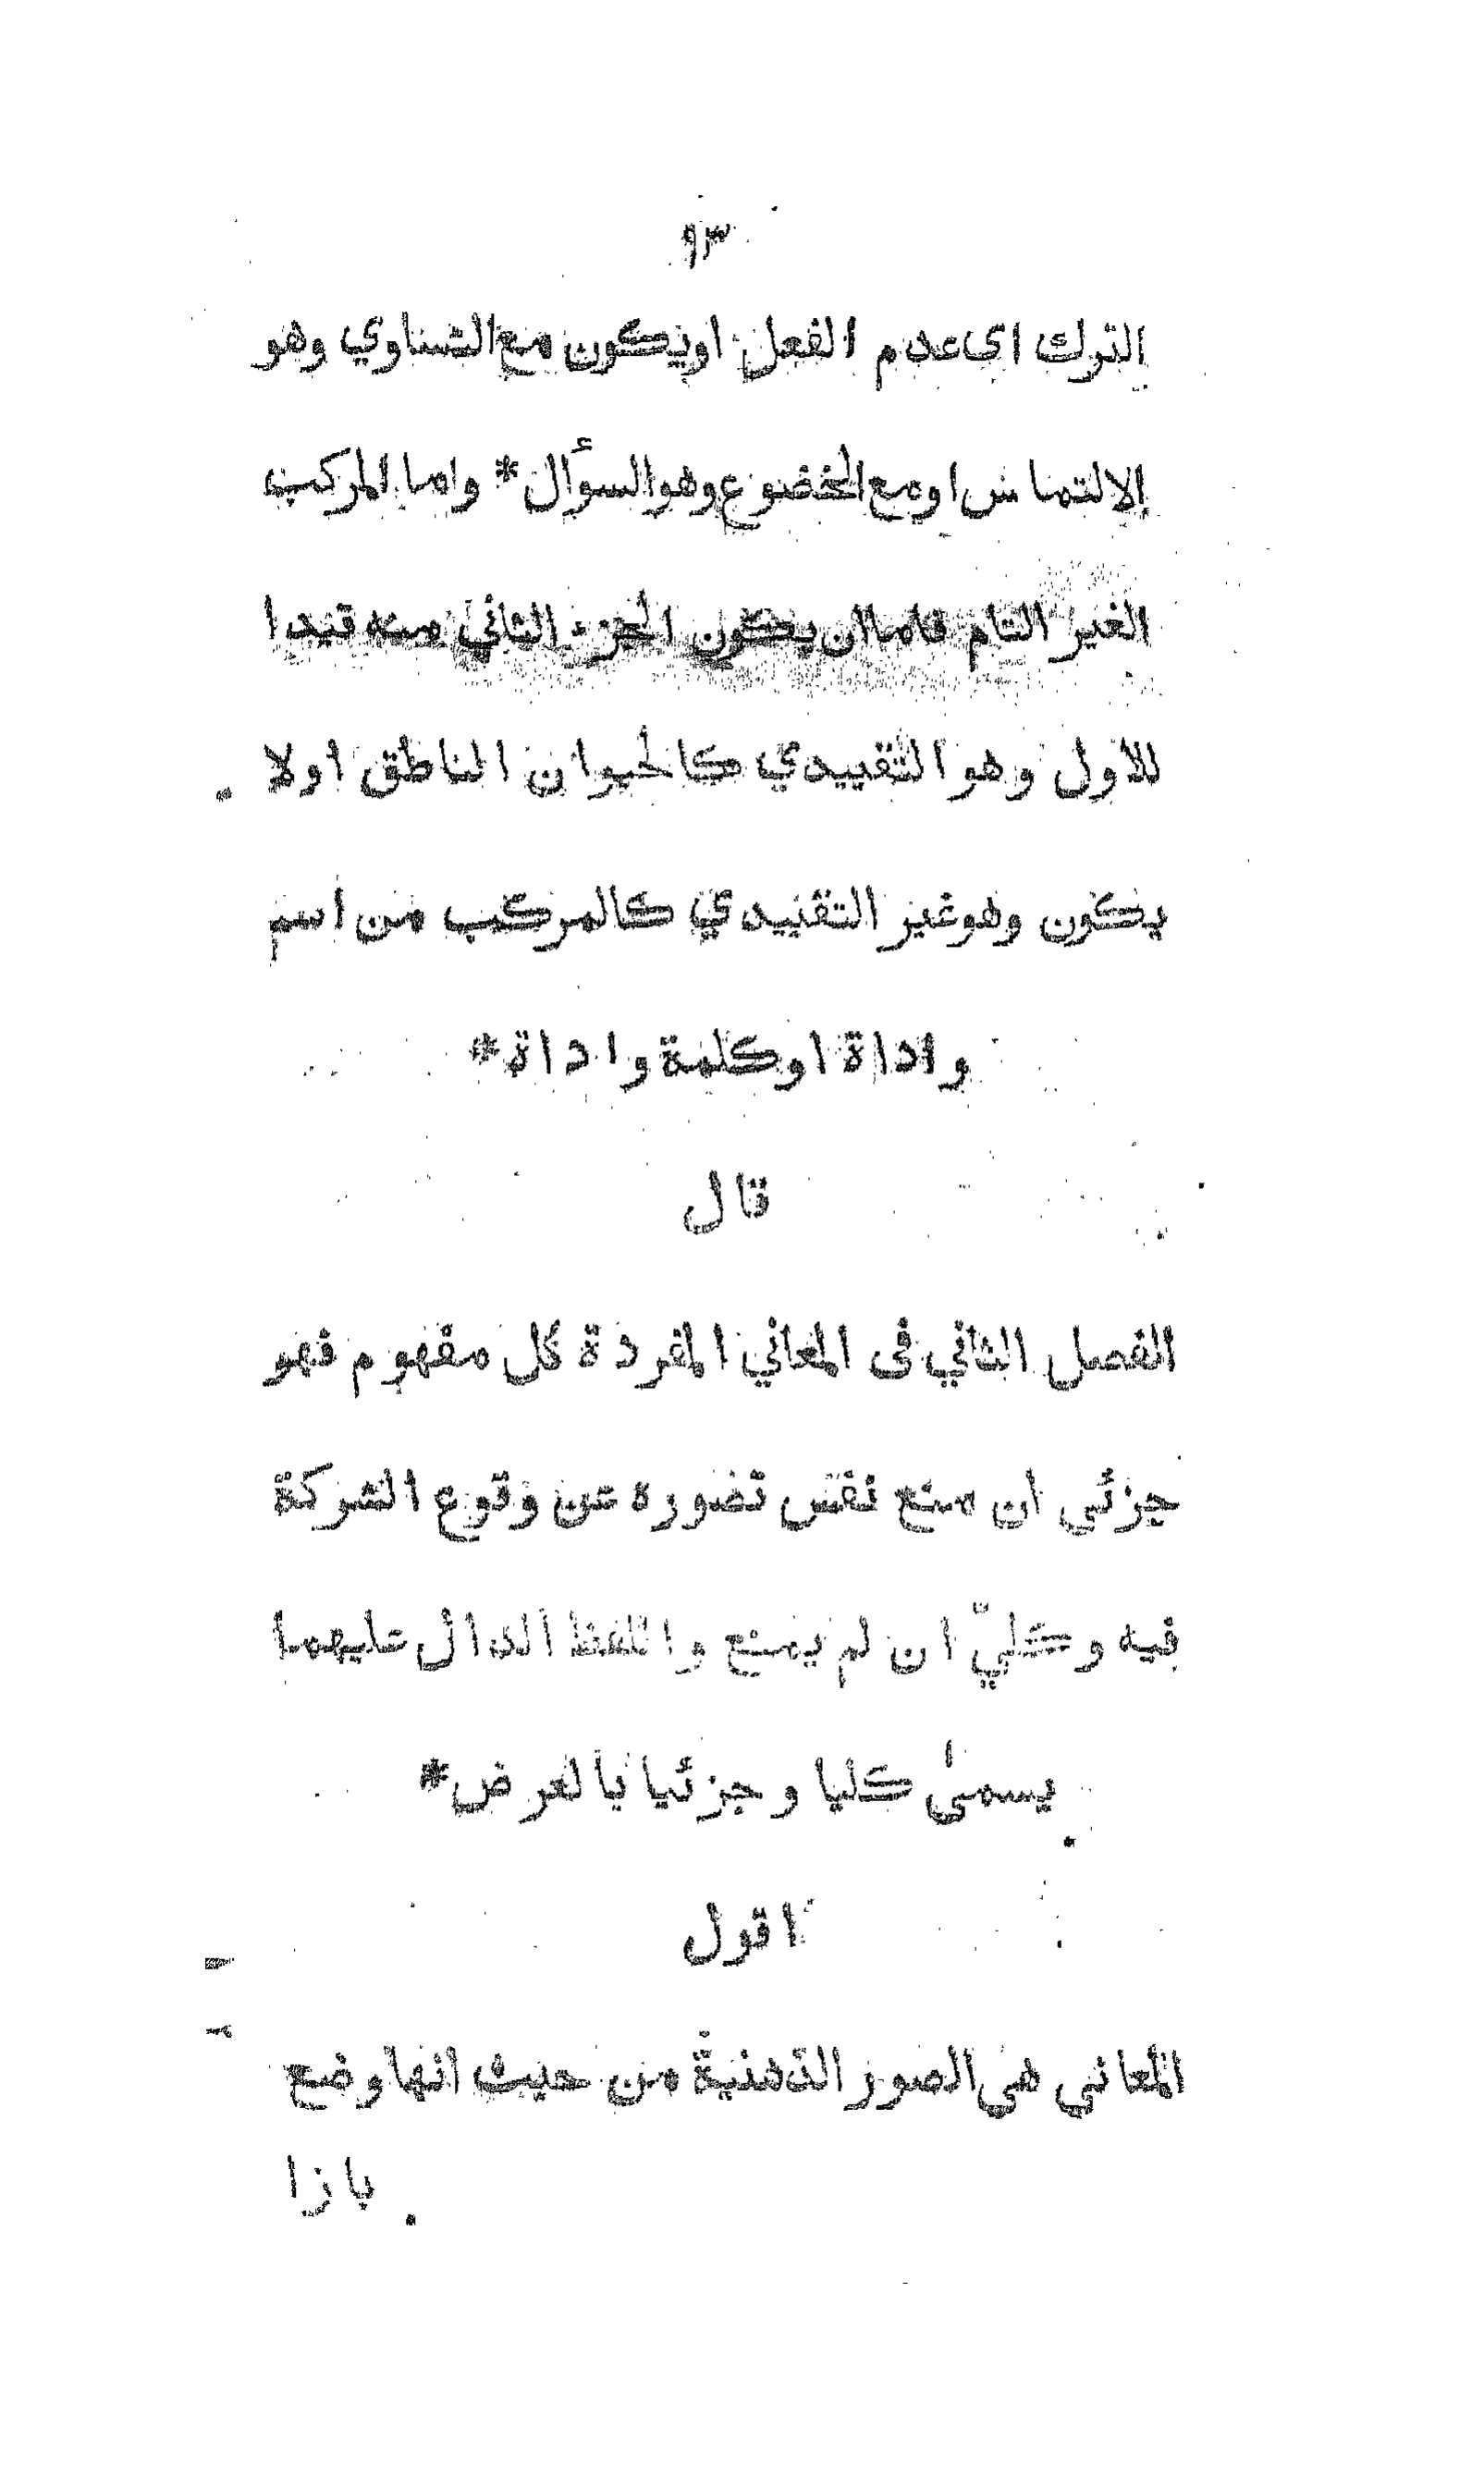 ٩٣
الترك اى عدم الفعل او يكون مع التساوي وهو
الالتماس او مع الخضوع وهو السؤال * واما المركب
الغير التام فاما ان يكون الجزء الثاني منه قيدا
للاول وهو التقييدي كالحيوان الناطق اولا
يكون وهو غير التقييدي كالمركب من اسم
واداة او كلمة واداة *
قال
الفصل الثاني فى المعاني المفردة كل مفهوم فهو
جزئي ان منع نفس تصوره عن وقوع الشركة
فيه وكليّ ان لم يمنع واللفظ الدال عليهما
يسمىٰ كليا وجزئيا بالعرض *
اقول
المعاني هي الصور الذهنية من حيث انها وضع
بازا